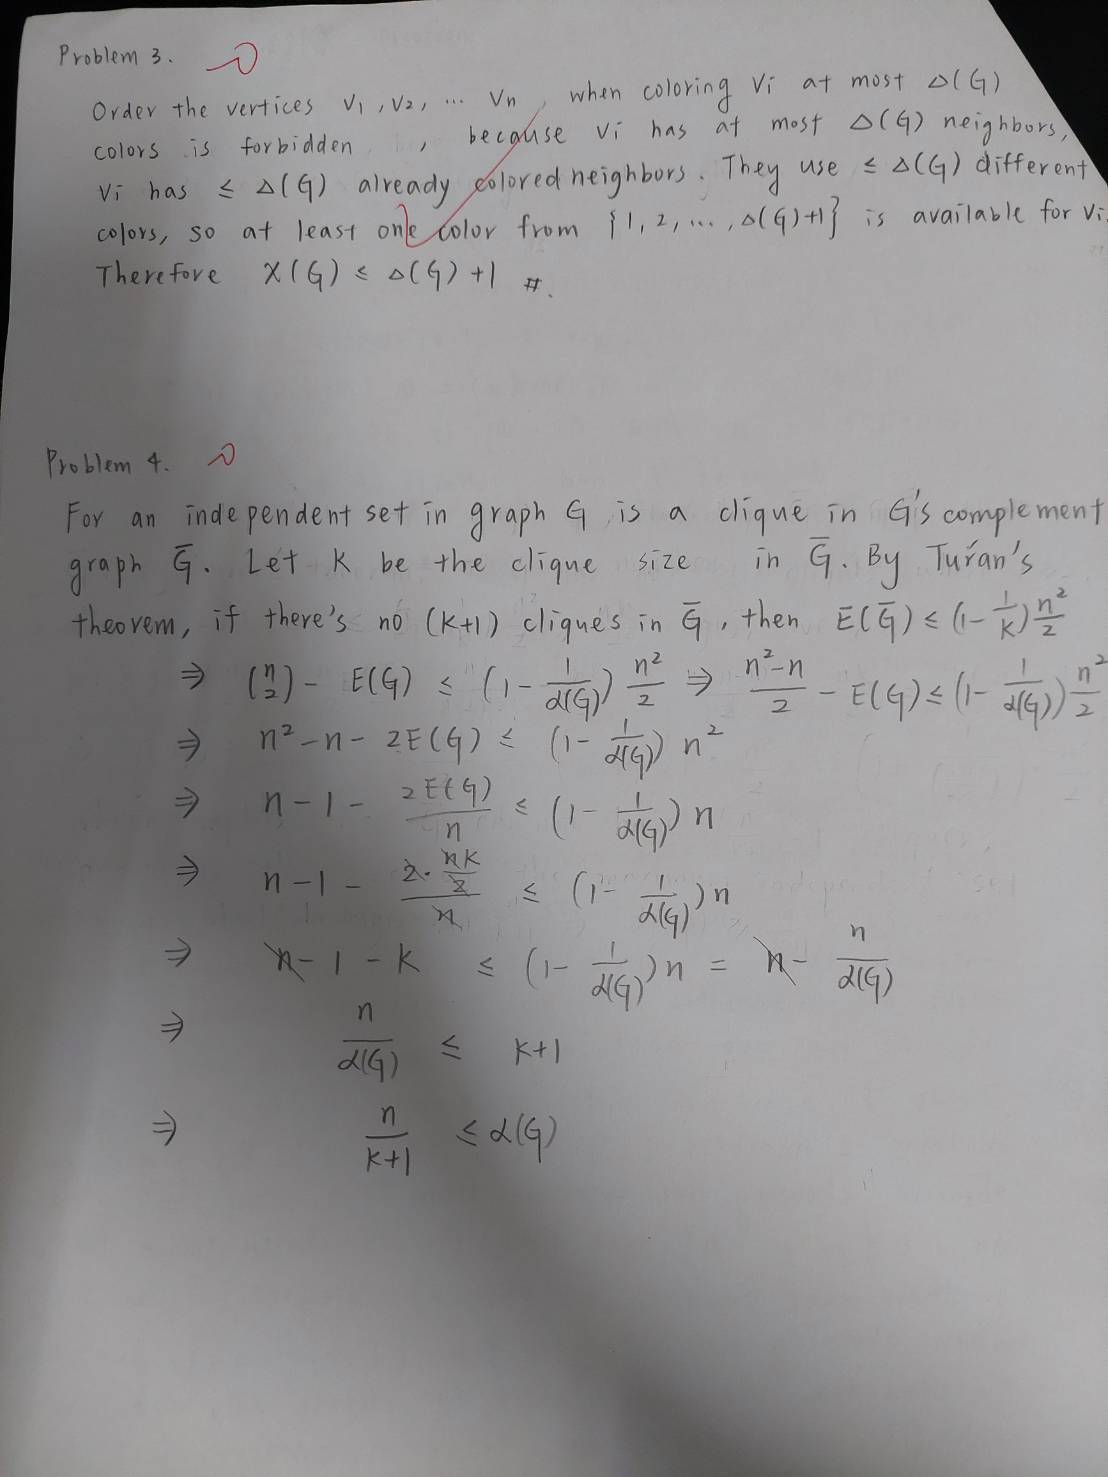 Problem 3.
Order the vertices v₁, v₂, ... vₙ, when coloring vᵢ at most Δ(G)
colors is forbidden, because vᵢ has at most Δ(G) neighbors,
vᵢ has ≤ Δ(G) already colored neighbors. They use ≤ Δ(G) different
colors, so at least one color from {1, 2, ..., Δ(G)+1} is available for vᵢ.
Therefore χ(G) ≤ Δ(G) +1 #.
Problem 4.
For an independent set in graph G is a clique in G's complement
graph Ḡ. Let K be the clique size in Ḡ. By Turán's
theorem, if there's no (k+1) cliques in Ḡ, then E(Ḡ) ≤ (1-1/k) n²/2
⇒ (n 2) - E(G) ≤ (1 - 1/α(G)) n²/2 ⇒ (n²-n)/2 - E(G) ≤ (1- 1/α(G)) n²/2
⇒ n²-n - 2E(G) ≤ (1- 1/α(G)) n²
⇒ n-1- 2E(G)/n ≤ (1- 1/α(G)) n
⇒ n-1- (2·nk/2)/n ≤ (1- 1/α(G)) n
⇒ n-1-k ≤ (1- 1/α(G)) n = n- n/α(G)
⇒ n/α(G) ≤ k+1
⇒ n/(k+1) ≤ α(G)